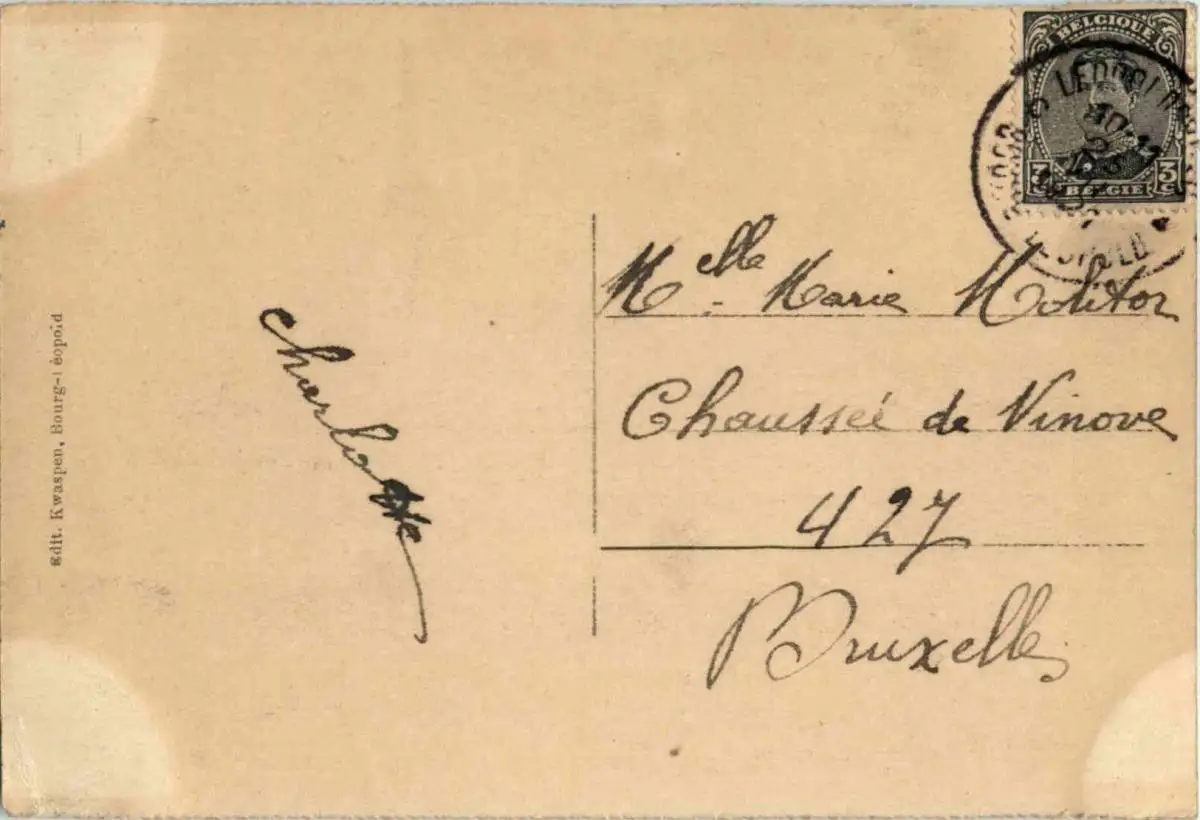 BELGIQUE
3 3c
BELGIË
LEOPOLD
Edit. Kwaspen, Bourg-Léopold
Charlotte
Melle. Marie Molitor
Chausseé de Ninove
427
Bruxelles